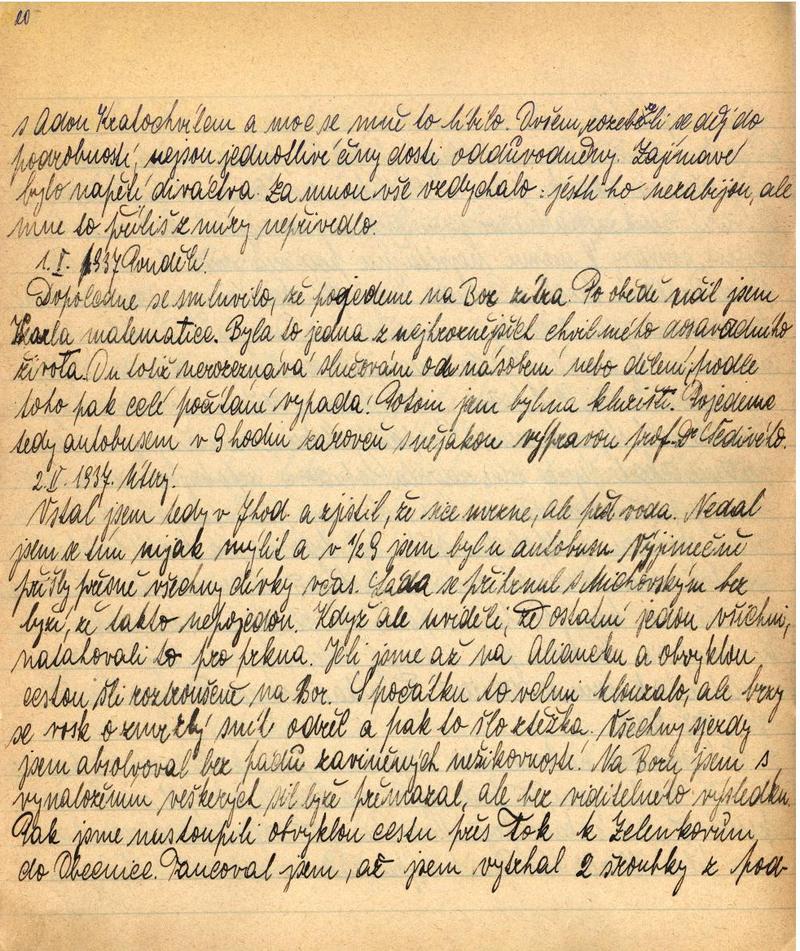 20
s Adou Kratochvílem a moc se mně to líbilo. Ovšem, rozebereli se děj do
podrobností, nejsou jednotlivé činy dosti oddůvodněny. Zajímavé
bylo napětí diváctva. Za mnou vše vzdychalo: jestli ho nezabijou, ale
mne to příliš z míry nepřivedlo.
1.II. 1937 Pondělí.
Dopoledne se smluvilo, že pojedeme na Bor zítra. Po obědě učil jsem
Karla matematice. Byla to jedna z nejhroznějších chvil mého dosavadního
života. On totiž nerozeznává slučování od násobení nebo dělení, podle
toho pak celé počítání vypadá! Potom jsem byl na kluzišti. Pojedeme
tedy autobusem v 9 hodin zároveň s nějakou výpravou prof. Dr. Šedivého.
2.II. 1937. Úterý.
Vstal jsem tedy v 7 hod. a zjistil, že sice mrzne, ale prší voda. Nedal
jsem se tím nijak mýlit a v ½ 9 jsem byl u autobusu. Výjimečně
přišly přesně všechny dívky včas. Láda se přihrnul s Michovským bez
lyží, že takto nepojedou. Když ale uviděli, že ostatní jedou všichni,
natahovali to pro prkna. Jeli jsme až na Alianeku a obvyklou
cestou šli roztroušeně na Bor. S počátku to velmi klouzalo, ale brzy
se vosk o zmrzlý sníh odřel a pak to šlo ztěžka. Všechny sjezdy
jsem absolvoval bez pádů zaviněných nešikovností! Na Boru jsem s
vynaložením veškerých sil lyže přemazal, ale bez viditelného výsledku.
Pak jsme nastoupili obvyklou cestu přes Tok k Zelenkovům
do Obecnice. Tancoval jsem, až jsem vytrhal 2 šroubky z pod-